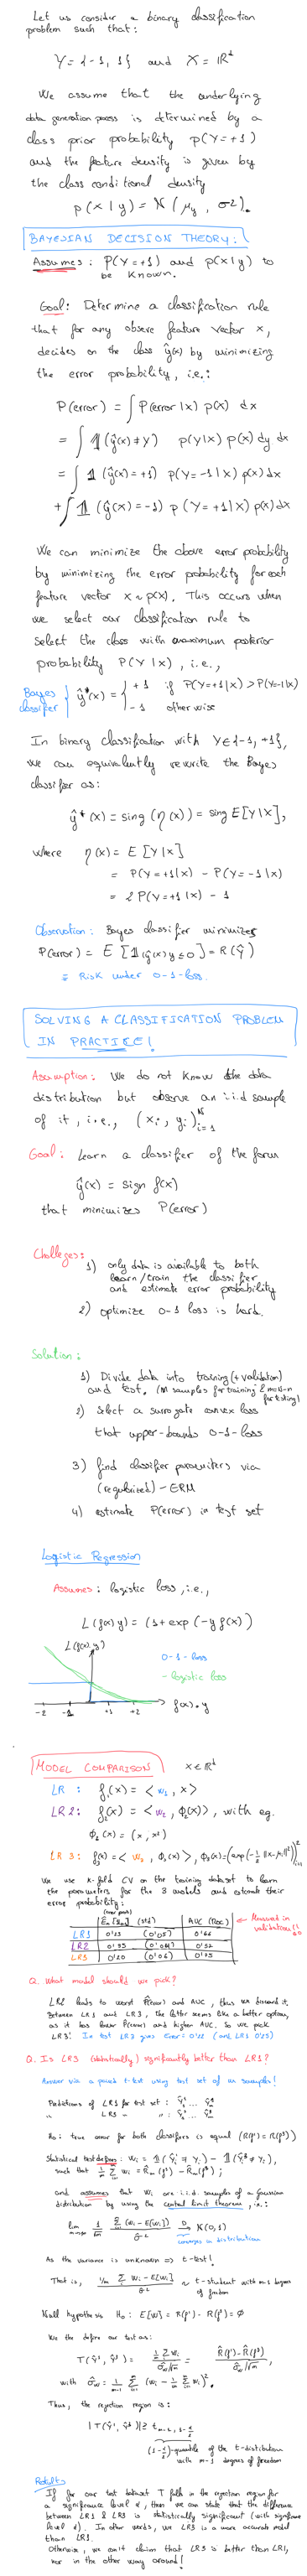 Let us consider a binary classification
problem such that:
Y = {-1, 1} and X = ℝᵈ
We assume that the underlying
data generation process is determined by a
class prior probability p(Y=+1)
and the feature density is given by
the class conditional density
p(x|y) = N(μy, σ²).
BAYESIAN DECISION THEORY:
Assumes: P(Y=+1) and p(x|y) to
be known.
Goal: Determine a classification rule
that for any observe feature vector x,
decides on the class ŷ(x) by minimizing
the error probability, i.e.:
P(error) = ∫ P(error|x) p(x) dx
= ∫ 𝟙(ŷ(x)≠y) p(y|x) p(x) dy dx
= ∫ 𝟙(ŷ(x)=+1) p(Y=-1|x) p(x) dx
+ ∫ 𝟙(ŷ(x)=-1) p(Y=+1|x) p(x) dx
We can minimize the above error probability
by minimizing the error probability for each
feature vector x ~ p(x). This occurs when
we select our classification rule to
select the class with maximum posterior
probability P(Y|x), i.e.,
Bayes
classifier
ŷ*(x) = { +1 if P(Y=+1|x) > P(Y=-1|x)
-1 otherwise
In binary classification with Y∈{-1,+1},
we can equivalently rewrite the Bayes
classifier as:
ŷ*(x) = sing(η(x)) = sing E[Y|X],
where η(x) = E[Y|X]
= P(Y=+1|x) - P(Y=-1|x)
= 2P(Y=+1|x) - 1
Observation: Bayes classifier minimizes
P(error) = E[𝟙(ŷ(x)y≤0)] = R(ŷ)
= Risk under 0-1-loss.
SOLVING A CLASSIFICATION PROBLEM
IN PRACTICE!
Assumption: We do not know the data
distribution but observe an i.i.d sample
of it, i.e., (xi, yi)ᴺi=1
Goal: Learn a classifier of the form
ŷ(x) = sign f(x)
that minimizes P(error)
Challeges:
1) only data is available to both
learn/train the classifier
and estimate error probability
2) optimize 0-1 loss is hard.
Solution:
1) Divide data into training (+validation)
and test. (M samples for training & for testing)
2) Select a surrogate convex loss
that upper-bounds 0-1-loss
3) find classifier parameters via
(regularized)-ERM
4) estimate P(error) in test set
Logistic Regression
Assumes: logistic loss, i.e.,
L(f(x) y) = (1+exp(-y f(x))
L(f(x), y)
0-1-loss
-logistic loss
-2 -1 +1 +2 f(x)·y
MODEL COMPARISON x∈ℝᵈ
LR: f1(x) = <w1, x>
LR2: f2(x) = <w2, φ2(x)>, with eg.
φ2(x) = (x, x²)
LR3: f3(x) = <w3, φ3(x)>, φ3(x) =
We use k-fold CV on the training dataset to learn
the parameters for the 3 models and estimate their
error probability:
(std) AUC (ROC)
Measured in
validation
LR1
LR2
LR3
Q. What model should we pick?
LR2 leads to worst P(error) and AUC, thus we discard it.
Between LR1 and LR3, the latter seems like a better option,
as it has lower P(error) and higher AUC. So we pick
LR3! In test LR3 gives Error: 0'22 (and LR1 0'23)
Q. Is LR3 (statistically) significantly better than LR1?
Answer via a paired t-test using test set of m samples!
Predictions of LR1 for test set:
LR3
Ho: true error for both classifiers is equal (R(f¹) = R(f³))
Statistical test defines: wi = 𝟙(ŷi¹ ≠ yi) - 𝟙(ŷi³ ≠ yi),
such that 1/m Σ wi = R̂m(f¹) - R̂m(f³);
and assumes that wi are i.i.d. samples of a gaussian
distribution by using the central limit theorem, i.e.:
converges in distribution
As the variance is unknown => t-test!
That is, ~ t-student with m-1 degrees
of freedom
Null hypothesis H0: E[w] = R(f¹) - R(f³) = 0
We the define our test as:
T(ŷ¹, ŷ³) =
with σ̂w² = 1/(m-1) Σ (wi - 1/m Σ wi)².
Thus, the rejection region is:
|T(ŷ¹, ŷ³)| ≥ t m-1, 1-α/2
(1-α/2)-quantile of the t-distribution
with m-1 degrees of freedom
Results
If for our test dataset T falls in the rejection region for
a significance level α, then we can state that the difference
between LR1 & LR3 is statistically significant (with significance
level α). In other words, we LR3 is a more accurate model
than LR1.
Otherwise, we can't claim that LR3 is better than LR1,
nor in the other way around!